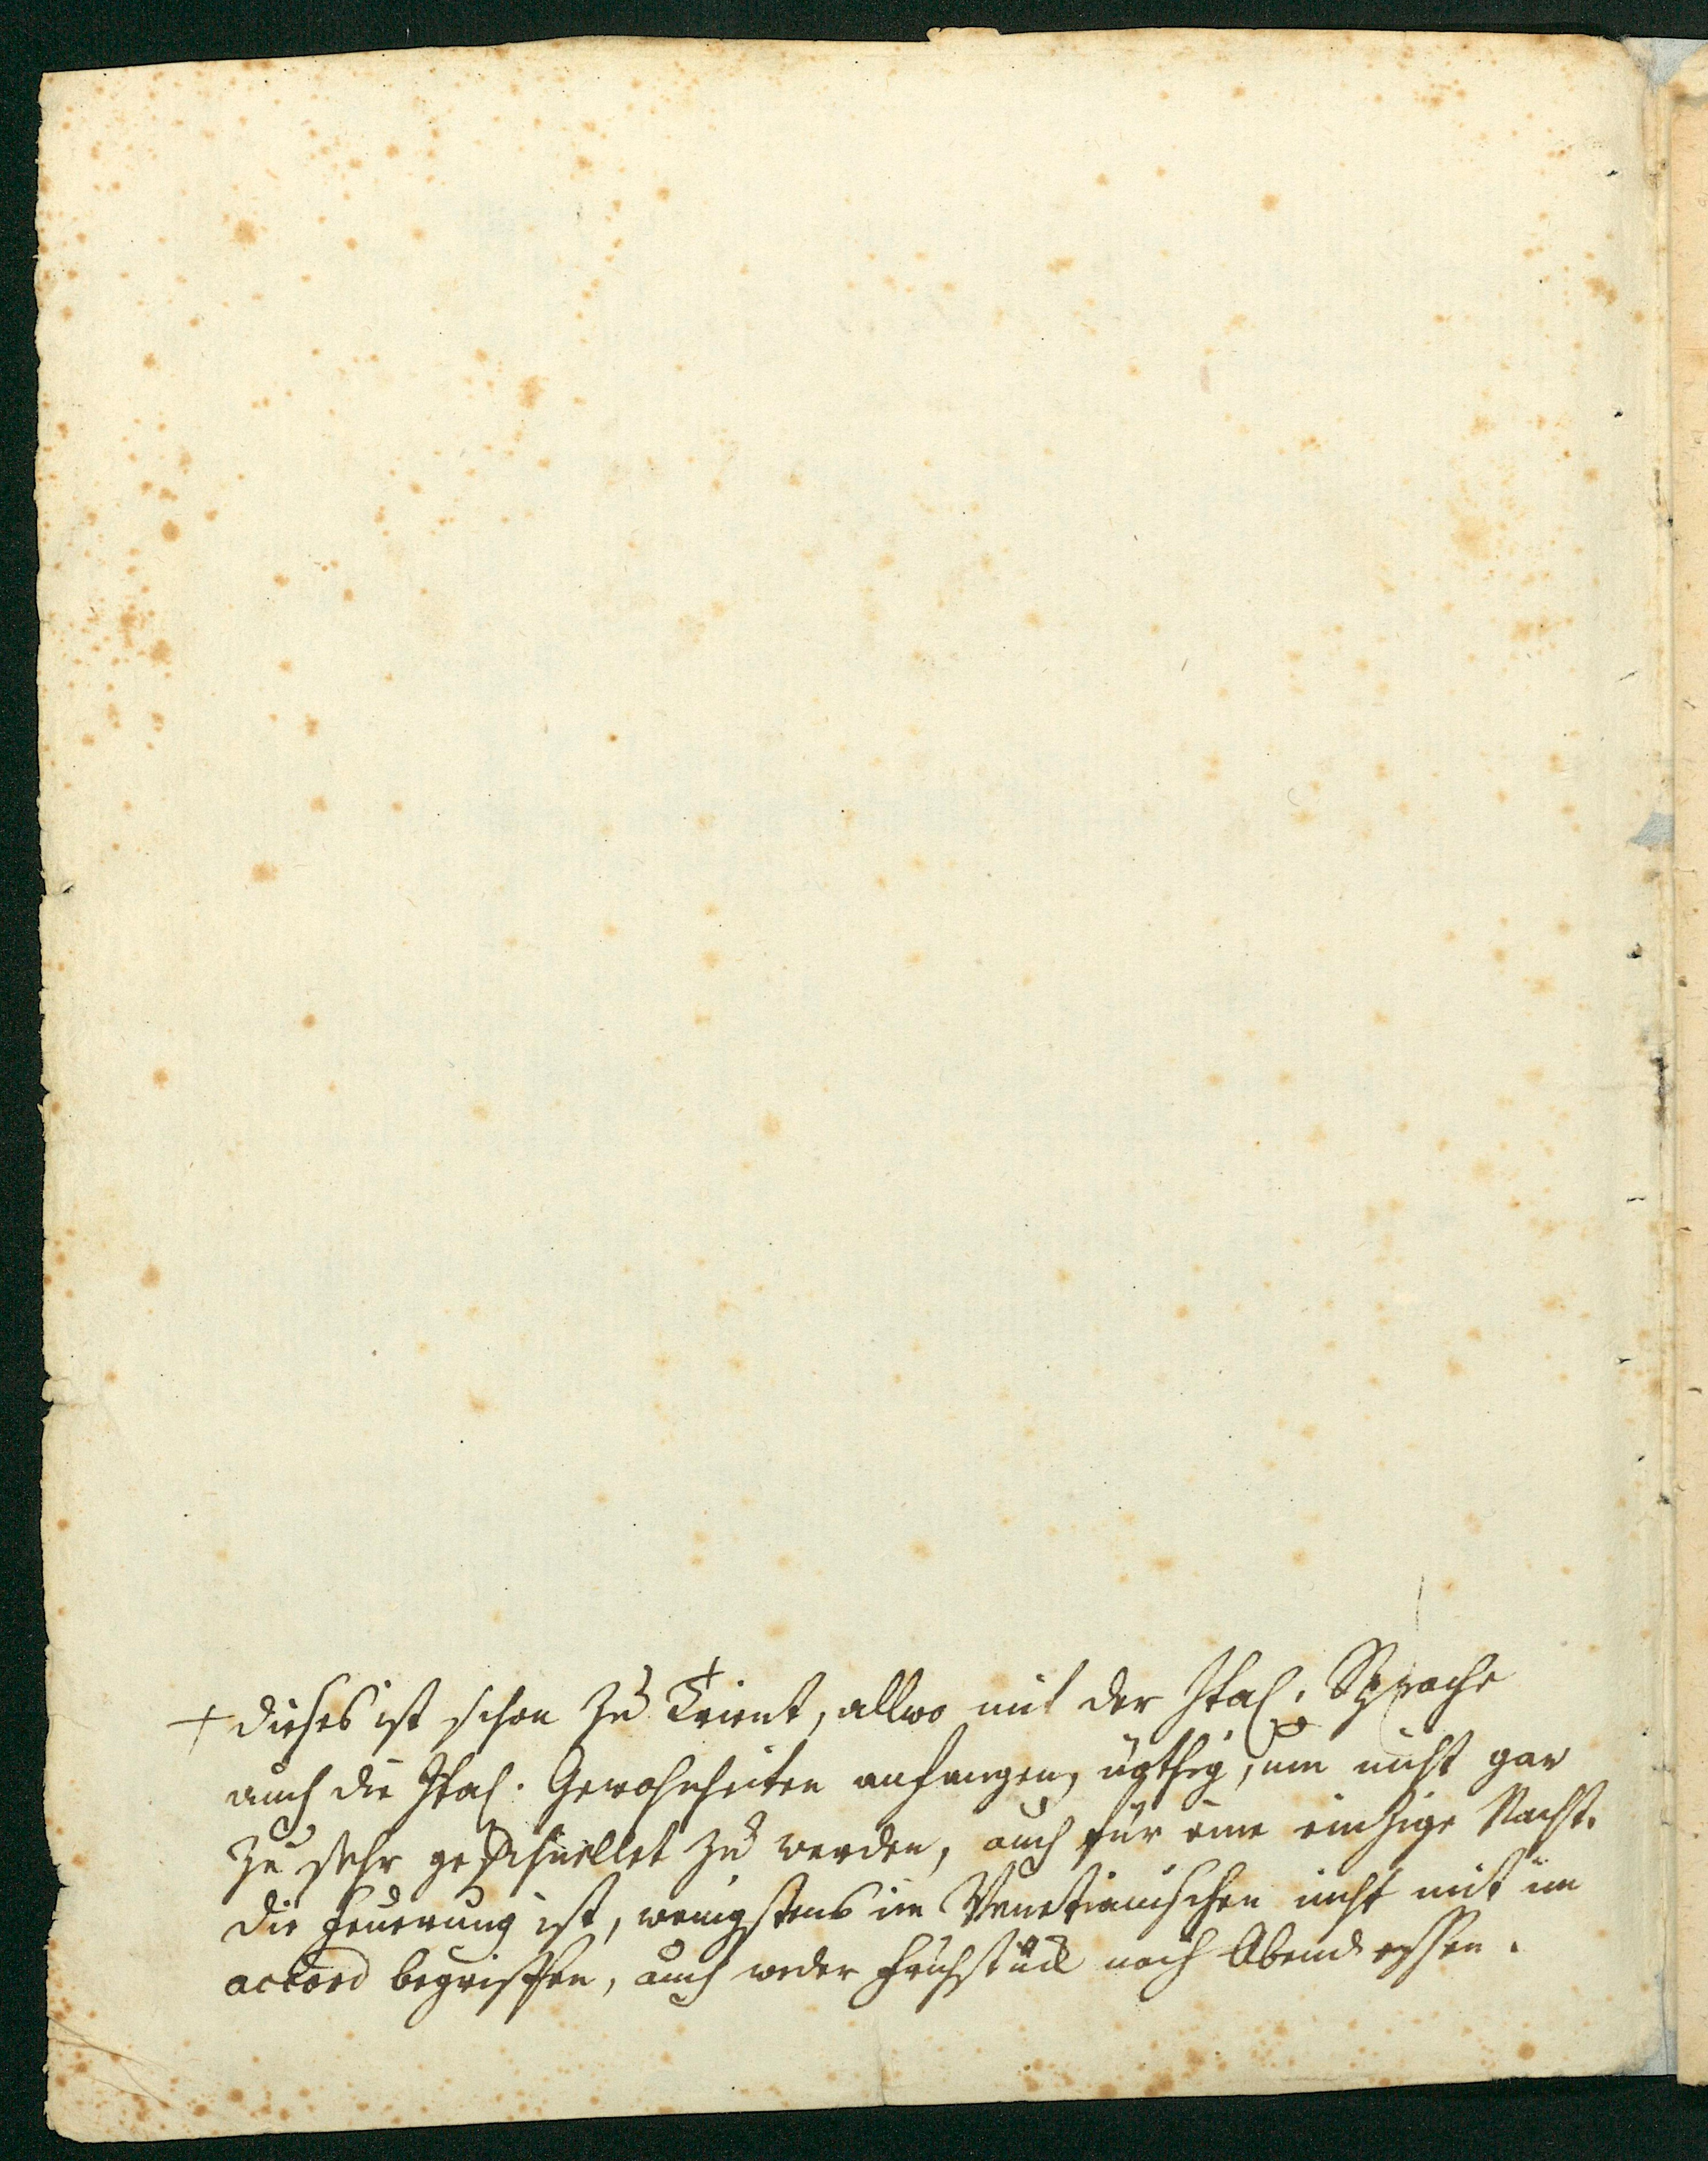 + dieses ist schon zu Trient, allwo mit der Ital. Sprache
auch die Ital. Gewohnheiten anfangen, nöthig, um nicht gar
zu sehr geschnellet zu werden, auch für eine einzige Nacht.
die Feuerung ist, wenigstens im Venetianischen nicht mit im
accord begriffen, auch weder Frühstück noch Abendessen.